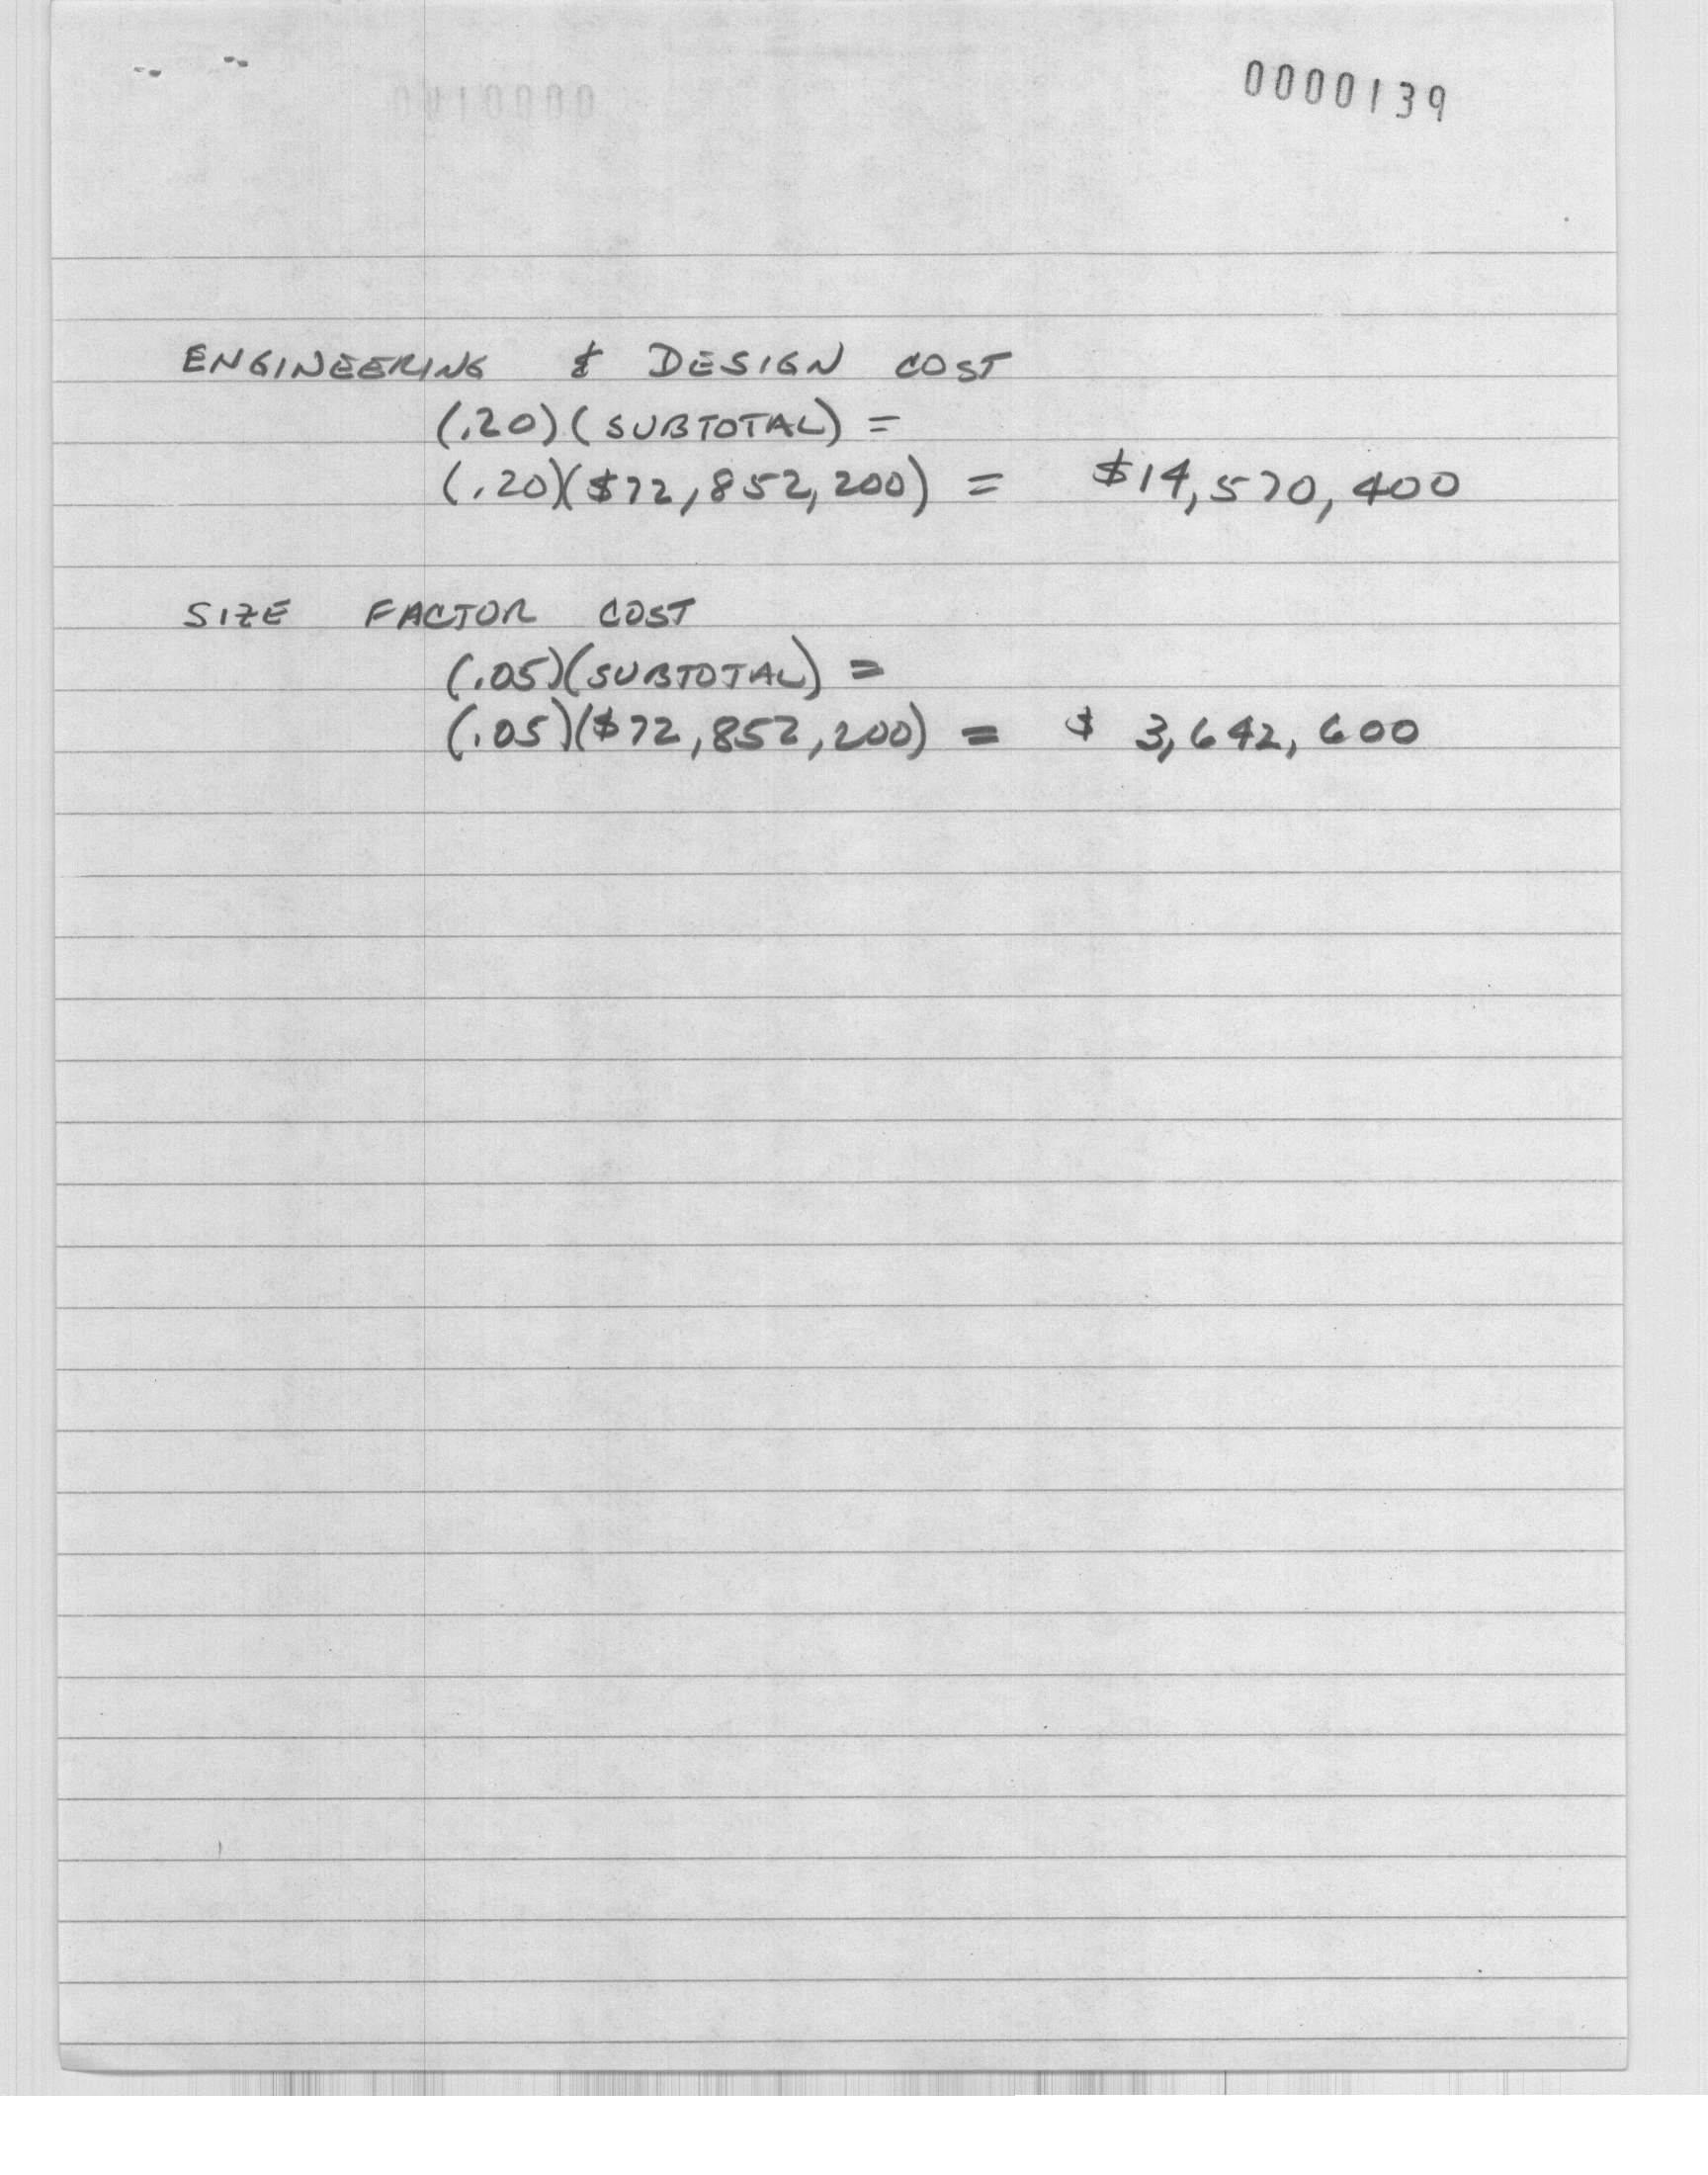 0000139
ENGINEERING & DESIGN COST
(.20)(SUBTOTAL) =
(.20)($72,852,200) = $14,570,400
SIZE FACTOR COST
(.05)(SUBTOTAL) =
(.05)($72,852,200) = $ 3,642,600